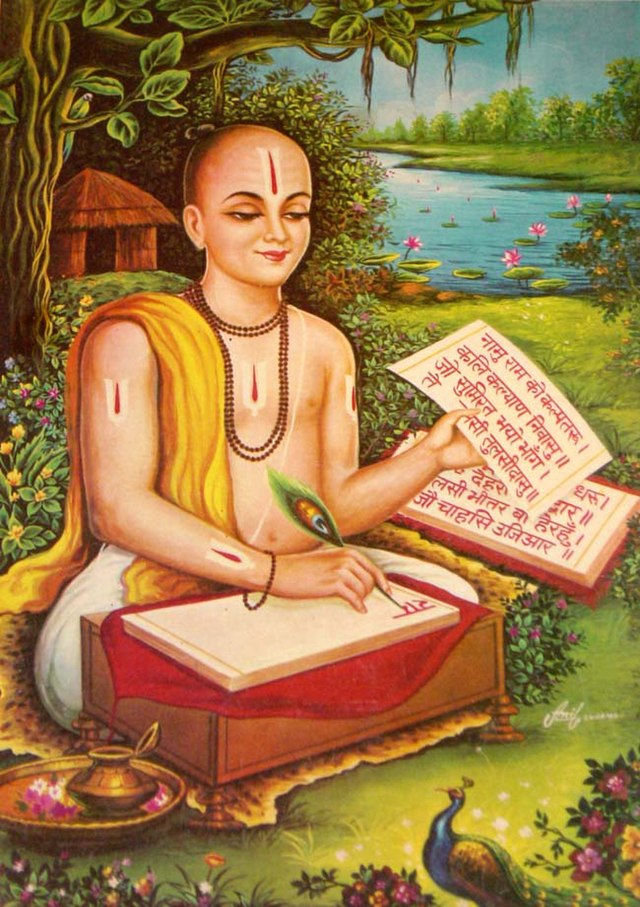 नामु राम को कल्पतरु ।
कलि कल्याण निवासु ॥
जो सुमिरत भयो भाँग
ते
सी तुलसीदासु ॥
धरु ।
लसी भीतर बा हेरहुँ
जौ चाहसि उजिआर ॥